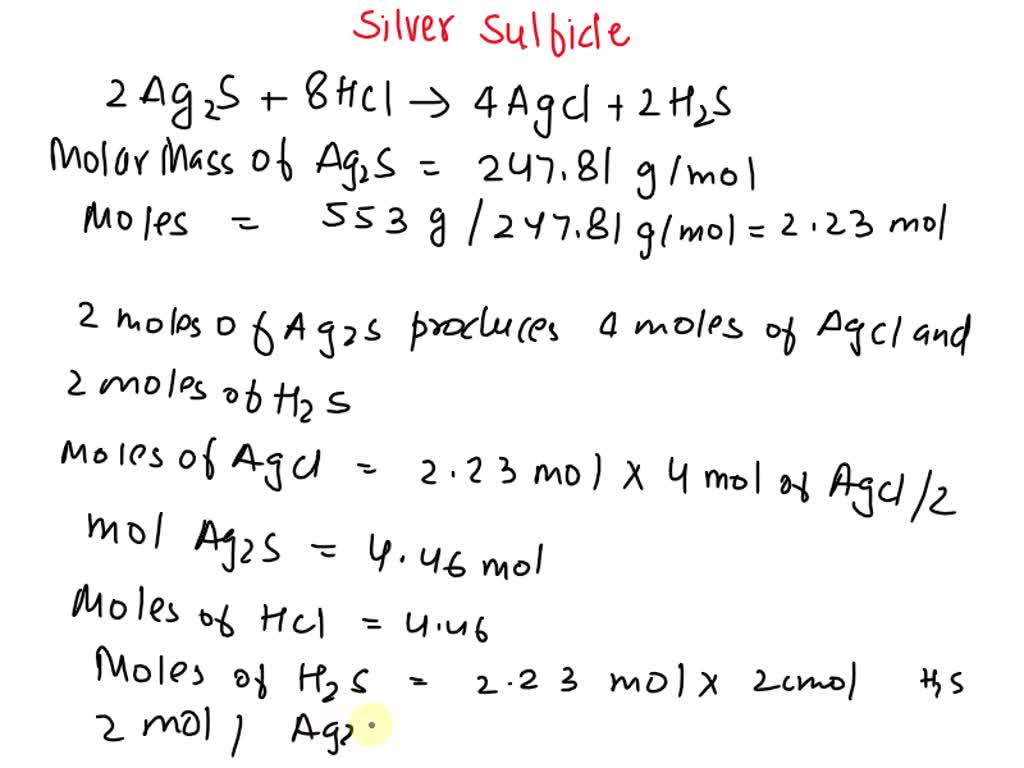 Silver Sulfide
2Ag₂S + 8HCl → 4AgCl + 2H₂S
Molar Mass of Ag₂S = 247.81 g/mol
Moles = 553 g/247.81 g/mol = 2.23 mol
2 moles of Ag₂S produces 4 moles of AgCl and
2 moles of H₂S
Moles of AgCl = 2.23 mol x 4 mol of AgCl/2
mol Ag₂S = 4.46 mol
Moles of HCl = 4.46
Moles of H₂S = 2.23 mol x 2 mol H₂S
2 mol / Ag₂